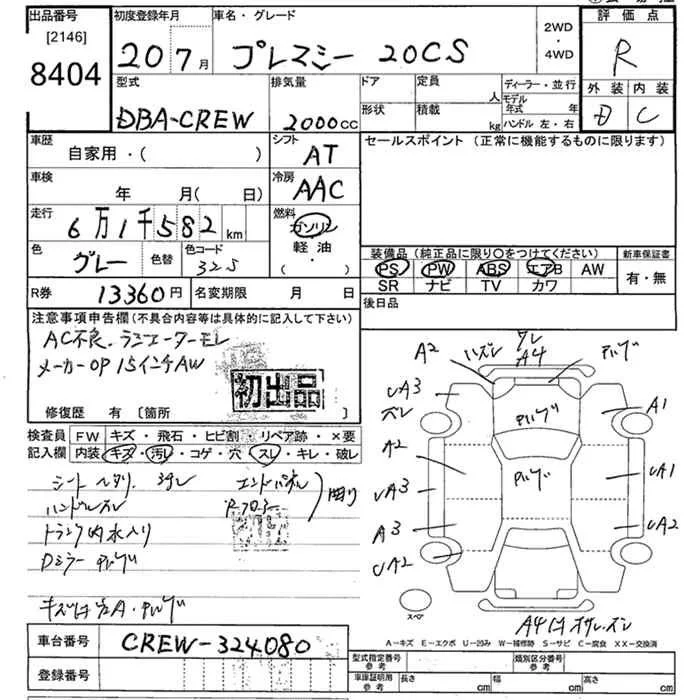 出品番号
[2146]
8404
初度登録年月
20 7月
車名・グレード
プレマシー 20CS
2WD
・
4WD
評価点
R
外装 内装
D C
型式
DBA-CREW
排気量
2000cc
ドア
形状
定員 人
積載 kg
ディーラー・並行
モデル年式 年
ハンドル 左・右
車歴
自家用・( )
シフト
AT
セールスポイント (正常に機能するものに限ります)
車検
年 月(日)
冷房
AAC
走行
6万1千582km
燃料
ガソリン
軽油
・( )
色
グレー
色替
色コード
32S
装備品 (純正品に限り○をつけてください)
PS PW ABS エアB AW
SR ナビ TV カワ
新車保証書
有・無
R券
13360円
名変期限 月 日
後日品
注意事項申告欄(不具合内容等は具体的に記入して下さい)
AC不良、ラジエーターモレ
メーカーOP 15インチAW
初出品
修復歴 有 〔箇所
検査員
記入欄
FW キズ・飛石・ヒビ割 リペア跡・×要
内装 キズ・汚レ・コゲ・穴 スレ・キレ・破レ
シートヘタリ
ハンドルスレ
トランク内水入り
Dミラー
エンドパネル
Rフロアー
A2 ハズレ ワレ A4
UA3
ズレ
A1
A2
UA3
UA1
A3
UA2
UA2
スペア
A4
A-キズ E-エクボ U-凹み W-補修跡 S-サビ C-腐食 XX-交換済
車台番号
CREW-324080
登録番号
型式指定番号
参考
類別区分番号
参考
車庫証明用
参考
長さ cm 幅 cm 高さ cm